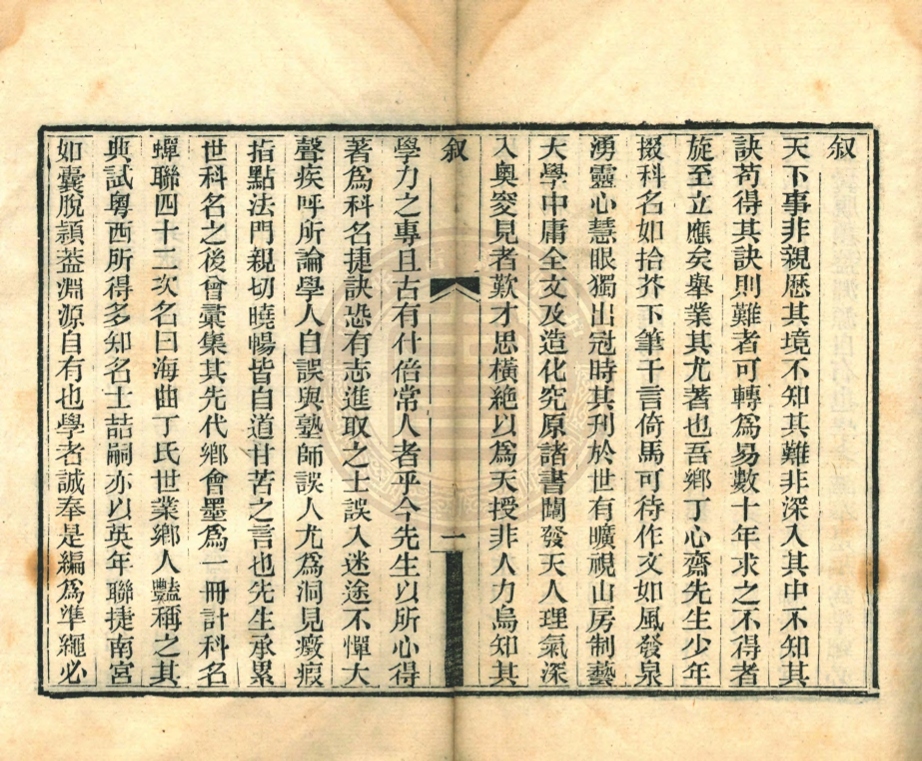 叙
天下事非親歷其境不知其難非深入其中不知其
訣苟得其訣則難者可轉爲易數十年求之不得者
旋至立應矣舉業其尤著也吾鄉丁心齋先生少年
掇科名如拾芥下筆千言倚馬可待作文如風發泉
湧靈心慧眼獨出冠時其刊於世有曠視山房制藝
大學中庸全文及造化究原諸書闡發天人理氣深
入奥窔見者歎才思橫絶以爲天授非人力烏知其
叙
一
學力之專且古有什倍常人者乎今先生以所心得
著爲科名捷訣恐有志進取之士誤入迷途不憚大
聲疾呼所論學人自誤與塾師誤人尤爲洞見癥瘕
指點法門親切曉暢皆自道甘苦之言也先生承累
世科名之後會彚集其先代鄉會墨爲一冊計科名
蟬聯四十二次名曰海曲丁氏世業鄉人豔稱之其
典試粵西所得多知名士喆嗣亦以英年聯捷南宮
如囊脫頴葢淵源自有也學者誠奉是編爲準繩必